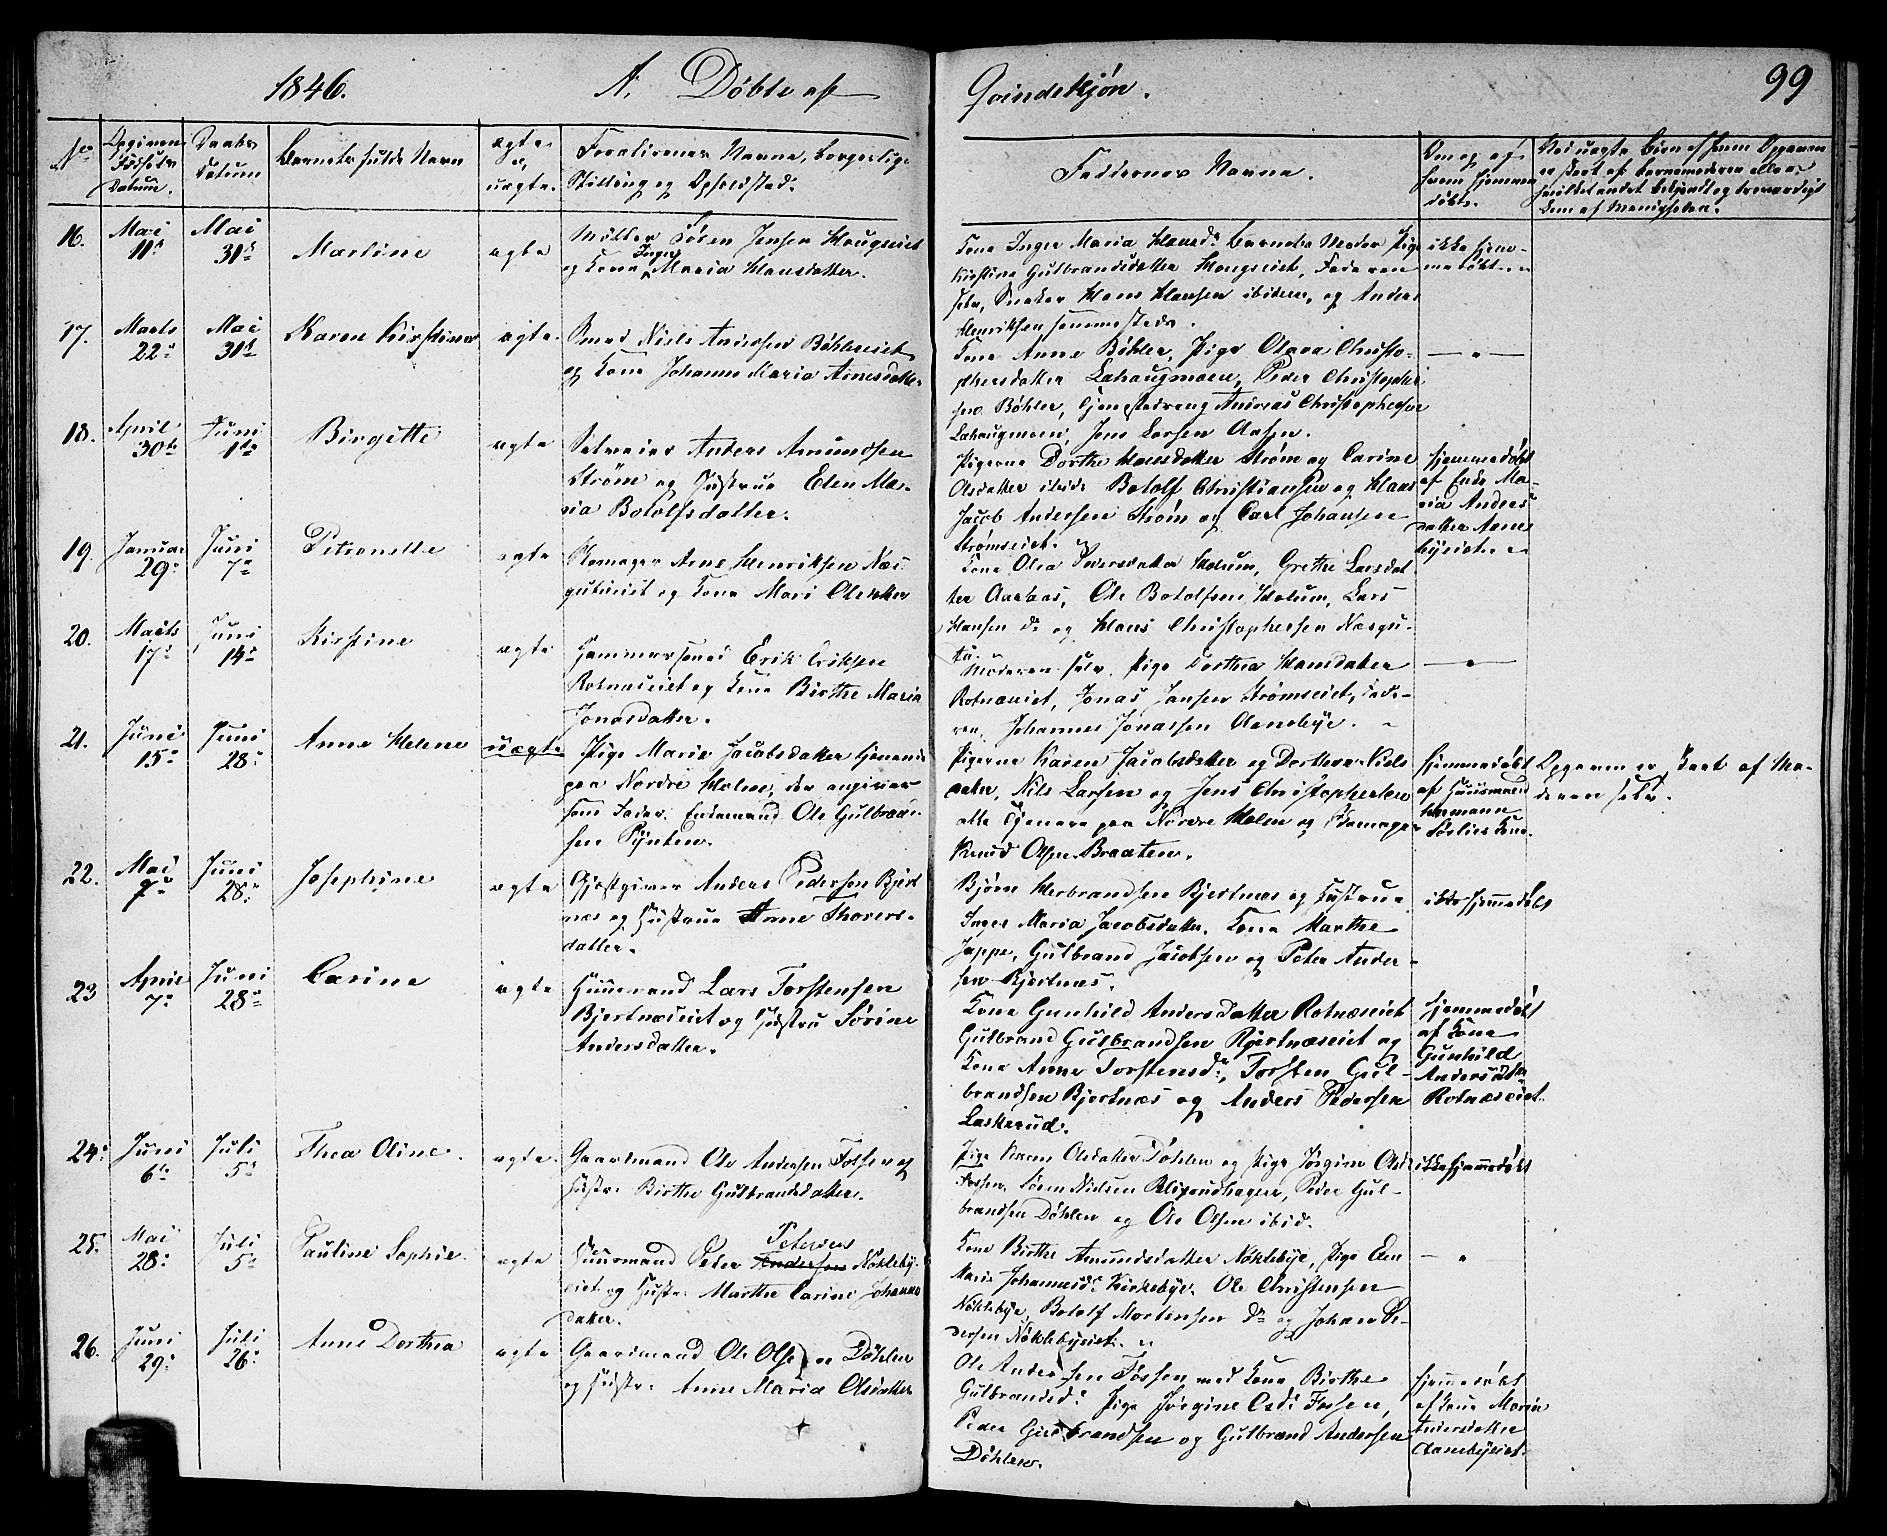 1846.
A. Döbte af
Qvindekjön.
99
No
Opgiven Födsels Datum.
Daabs Datum
Barnets fulde Navn
ægte el. uægte.
Forældrenes Navne, borgerlige
Stilling og Opholdssted.
Faddernes Navne.
Om og af
hvem hjemme
döbt.
16.
Mai
11te
Mai
31te
Martine
ægte
Möller Sören Jensen Haugseiet
og Kone Inger Maria Hansdatter.
Kone Inger Maria Hansdr Barnets Moder Pige
Kirstine Gulbrandsdatter Haugseiet, Faderen
selv, Hans Hansen ibidem, og Anders
Henriksen sammesteds.
ikke hjem-
medöbt.
17.
Marts
22de
Mai
31te
Karen Kirstine
ægte
Smed Niels Andersen Böhlereiet
og Kone Johanne Maria Arnesdatter
Kone Anne Böhler, Pige Olava Christo-
phersdatter Lahaugmoen, Peder Christopher
sen Böhler, Tjenestedreng Andreas Christophersen
Lahaugmoen, Jens Larsen Aasen.
— " —
18.
April
30te
Juni
1ste
Birgitte
ægte
Selveier Anders Amundsen
Ström og Hustrue Elen Ma-
ria Botolfsdatter.
Pigerne Dorthe Hansdatter Ström og Carine
Olsdatter ibid. Botolf Christiansen og Hans
Jacob Andersen Ström og Carl Johansen
Strömseiet.
hjemmedöbt
af Enke Ma-
ria Anders
datter Aane
byeiet.
19.
Januar
29de
Juni
7de
Petronelle
ægte
Arne Henriksen Næs
gutueiet og Kone Mari Olsdatter
Kone Olea Pedersdatter Holum, Grethe Larsdat
ter Aarhaas, Ole Botolfsen Holum, Lars
Hansen do og Hans Christophersen Næsgu-
tu.
20.
Marts
17de
Juni
14de
Kirstine
ægte
Hammersmed Erik Eriksen
Rotnæseiet og Kone Birthe Maria
Jonasdatter.
Moderen selv, Pige Dorthea Hansdatter
Rotnæseiet, Jonas Jansen Strömseiet, Fade-
ren, Johannes Jonassen Aanebye.
— " —
21.
Juni
15de
Juni
28de
Anne Helene
uægte
Pige Marie Jacobsdatter tjenende
paa Nordre Holm, der angiver
som Fader: Enkemand Ole Gulbrand-
sen Pynten.
Pigerne Karen Jacobsdatter og Dorthea Niels
datter, Nils Larsen og Jens Christophersen
alle Tjenere paa Nordre Holm og
Knud Olsen Braaten.
hjemmedöbt
af Huusmand
Hermann
Sörlies Kone.
Opgaven er skeet af Mo-
deren selv.
22.
Mai
7de
Juni
28de
Josephine
ægte
Gjæstgiver Anders Pedersen Bjert
næs og Hustrue Anne Thorers-
datter.
Björn Herbrandsen Bjertnæs og Hustrue
Inger Maria Jacobsdatter, Kone Marthe
Jappe, Gulbrand Jacobsen og Peter Ander-
sen Bjertnæs.
ikke hjemmedöbt
23
April
7de
Juni
28de
Carine
ægte
Huusmand Lars Torstensen
Bjertnæseiet og Hustru Sörine
Andersdatter.
Kone Gunhild Andersdatter Rotnæseiet
Gulbrand Gulbrandsen Bjertnæseiet og
Kone Anne Torstensdr, Torsten Gul-
brandsen Bjertnæs og Anders Pedersen
Laskerud.
hjemmedöbt
af Kone
Gunhild
Andersdtr
Rotnæseiet.
24
Juni
6te
Juli
5te
Thea Oline.
ægte
Gaardmand Ole Andersen Fossen og
Hustr. Birthe Gulbrandsdatter.
Pige Karen Olsdatter Döhlen og Pige Jörgine Olsdr
Fossen, Sören Nielsen, Peder Gul-
brandsen Döhlen og Ole Olsen ibid.
ikke hjemmedöbt
25.
Mai
28de
Juli
5te
Pauline Sophie.
ægte
Huusmand Peder Andersen Petersen Nöklebye-
eiet og Hustr. Marthe Carine Johannes
datter.
Kone Birthe Amundsdatter Nöklebye, Pige Elen
Marie Johannesdr Kirkebye. Ole Christensen
Nöklebye, Botolf Mortensen do og Johan Pe-
dersen Nöklebyeiet.
— "
26.
Juni
29de
Juli
26de
Anne Dorthea
ægte
Gaardmand Ole Olsen Döhlen
og Hustr. Anne Maria Olsdatter
Ole Andersen Fossen med Kone Birthe
Gulbrandsdr Pige Jörgine Olsdr Fossen,
Peder Gulbrandsen og Gulbrand Andersen
Döhlen.
hjemmedöbt
af Kone Maria
Andersdatter
Aanebyeiet.